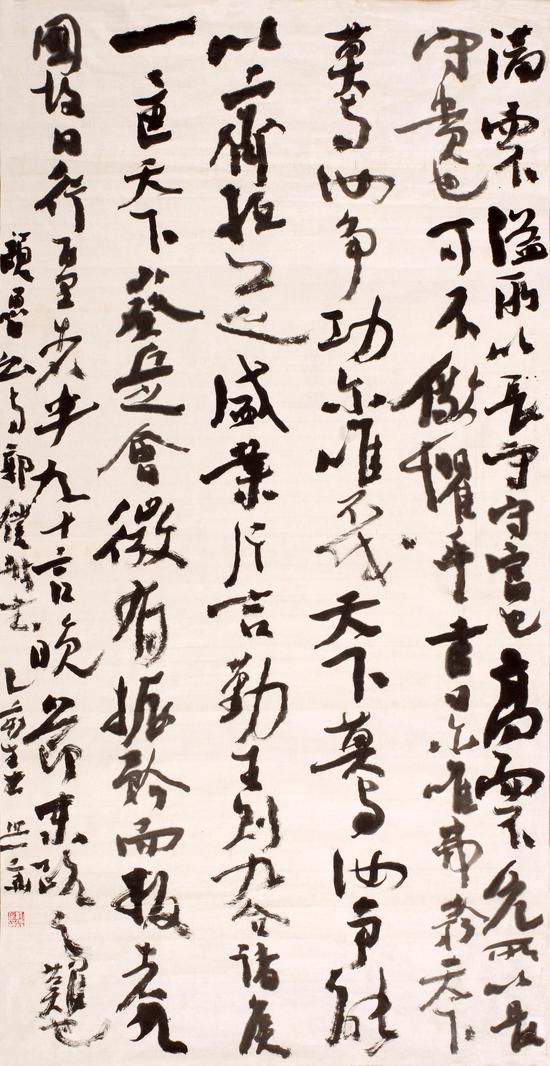 满而不溢所以長守守富也高而不危所以長
守貴也可不儆懼乎書曰尔唯弗矜天下
莫与汝争功尔唯不伐天下莫与汝争能
以齊桓公之盛業片言勤王則九合諸侯
一匡天下葵丘之會微有振矜而叛者九
國故曰行百里者半九十言晚節末路之難也
顏魯公与郭僕射書